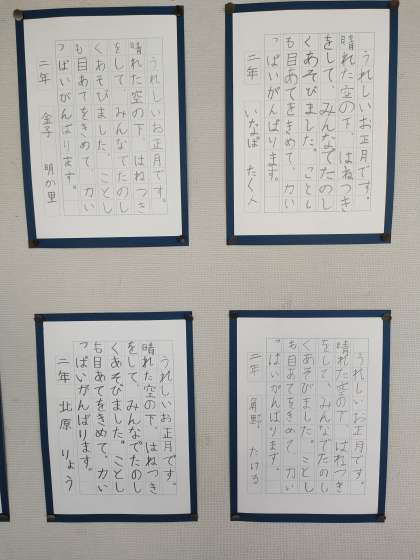 うれしいお正月です。
晴れた空の下、はねつき
をして、みんなでたのし
くあそびました。ことし
も目あてをきめて、力い
っぱいがんばります。
二年 いなば たく人
うれしいお正月です。
晴れた空の下、はねつき
をして、みんなでたのし
くあそびました。ことし
も目あてをきめて、力い
っぱいがんばります。
二年 金子 明か里
うれしいお正月です。
晴れた空の下、はねつき
をして、みんなでたのし
くあそびました。ことし
も目あてをきめて、力い
っぱいがんばります。
二年 角野 たける
うれしいお正月です。
晴れた空の下、はねつき
をして、みんなでたのし
くあそびました。ことし
も目あてをきめて、力い
っぱいがんばります。
二年 北原 りょう